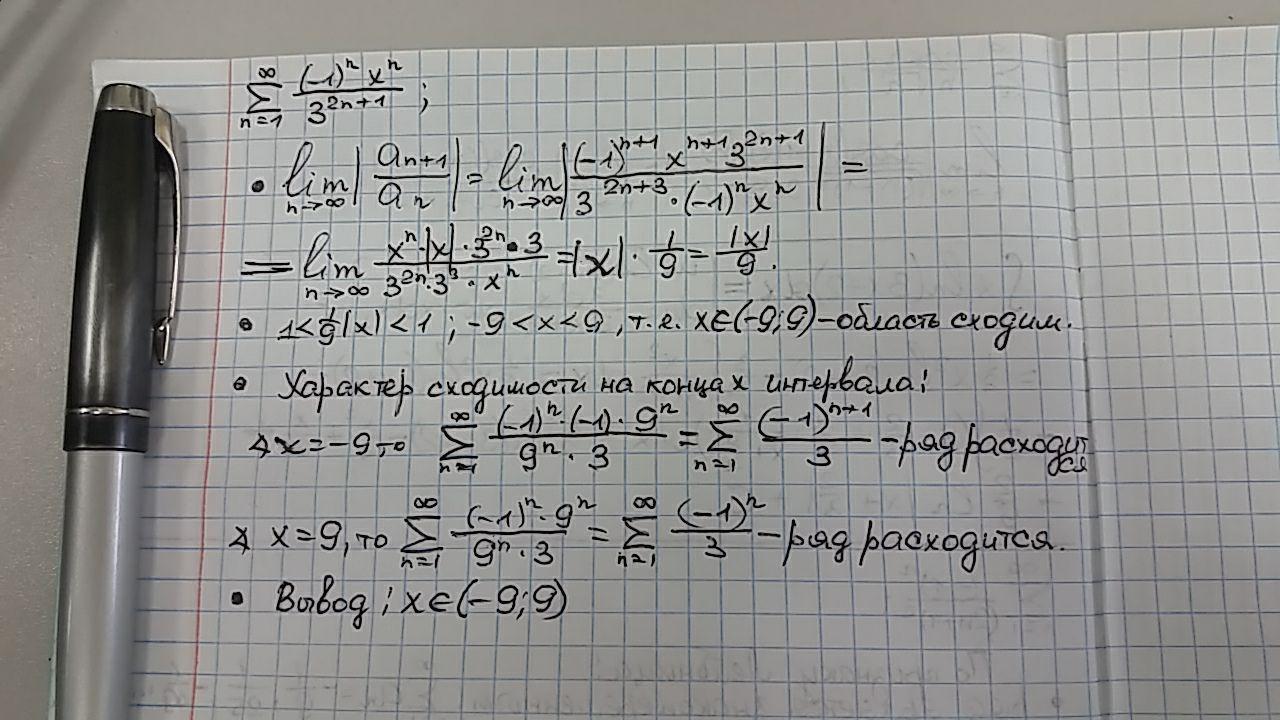 ∑_{n=1}^{∞} (-1)^n x^n / 3^{2n+1} ;
• lim_{n→∞} | a_{n+1} / a_n | = lim_{n→∞} | (-1)^{n+1} x^{n+1} 3^{2n+1} / 3^{2n+3} · (-1)^n x^n | =
= lim_{n→∞} x^n · |x| · 3^{2n} · 3 / 3^{2n} · 3^3 · x^n = |x| · 1/9 = |x|/9.
• 1 < 1/9 |x| < 1 ; -9 < x < 9, т.е. x ∈ (-9; 9) – область сходим.
• Характер сходимости на концах интервала:
∢ x = -9, то ∑_{n=1}^{∞} (-1)^n · (-1) · 9^n / 9^n · 3 = ∑_{n=1}^{∞} (-1)^{n+1} / 3 – ряд расходится
∢ x = 9, то ∑_{n=1}^{∞} (-1)^n · 9^n / 9^n · 3 = ∑_{n=1}^{∞} (-1)^n / 3 – ряд расходится.
• Вывод: x ∈ (-9; 9)